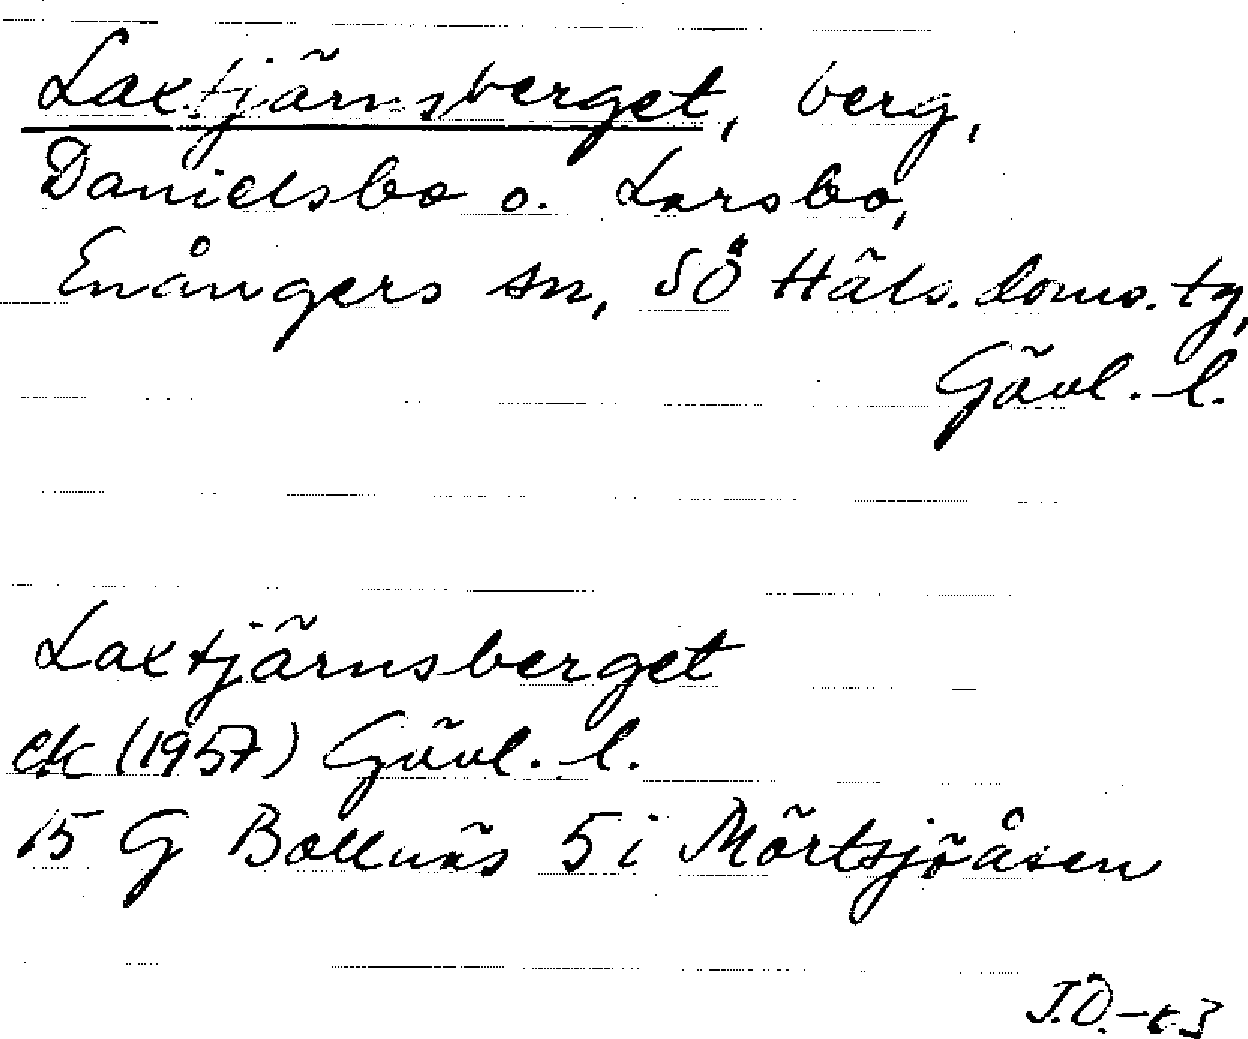 Laxtjärnsberget, berg,
Danielsbo o. Larsbo,
Enångers sn, SÖ Häls. doms. tg,
Gävl. l.
Laxtjärnsberget
ek (1957) Gävl. l.
15 G Bollnäs 5 i Mörtsjöåsen
J.Ö.